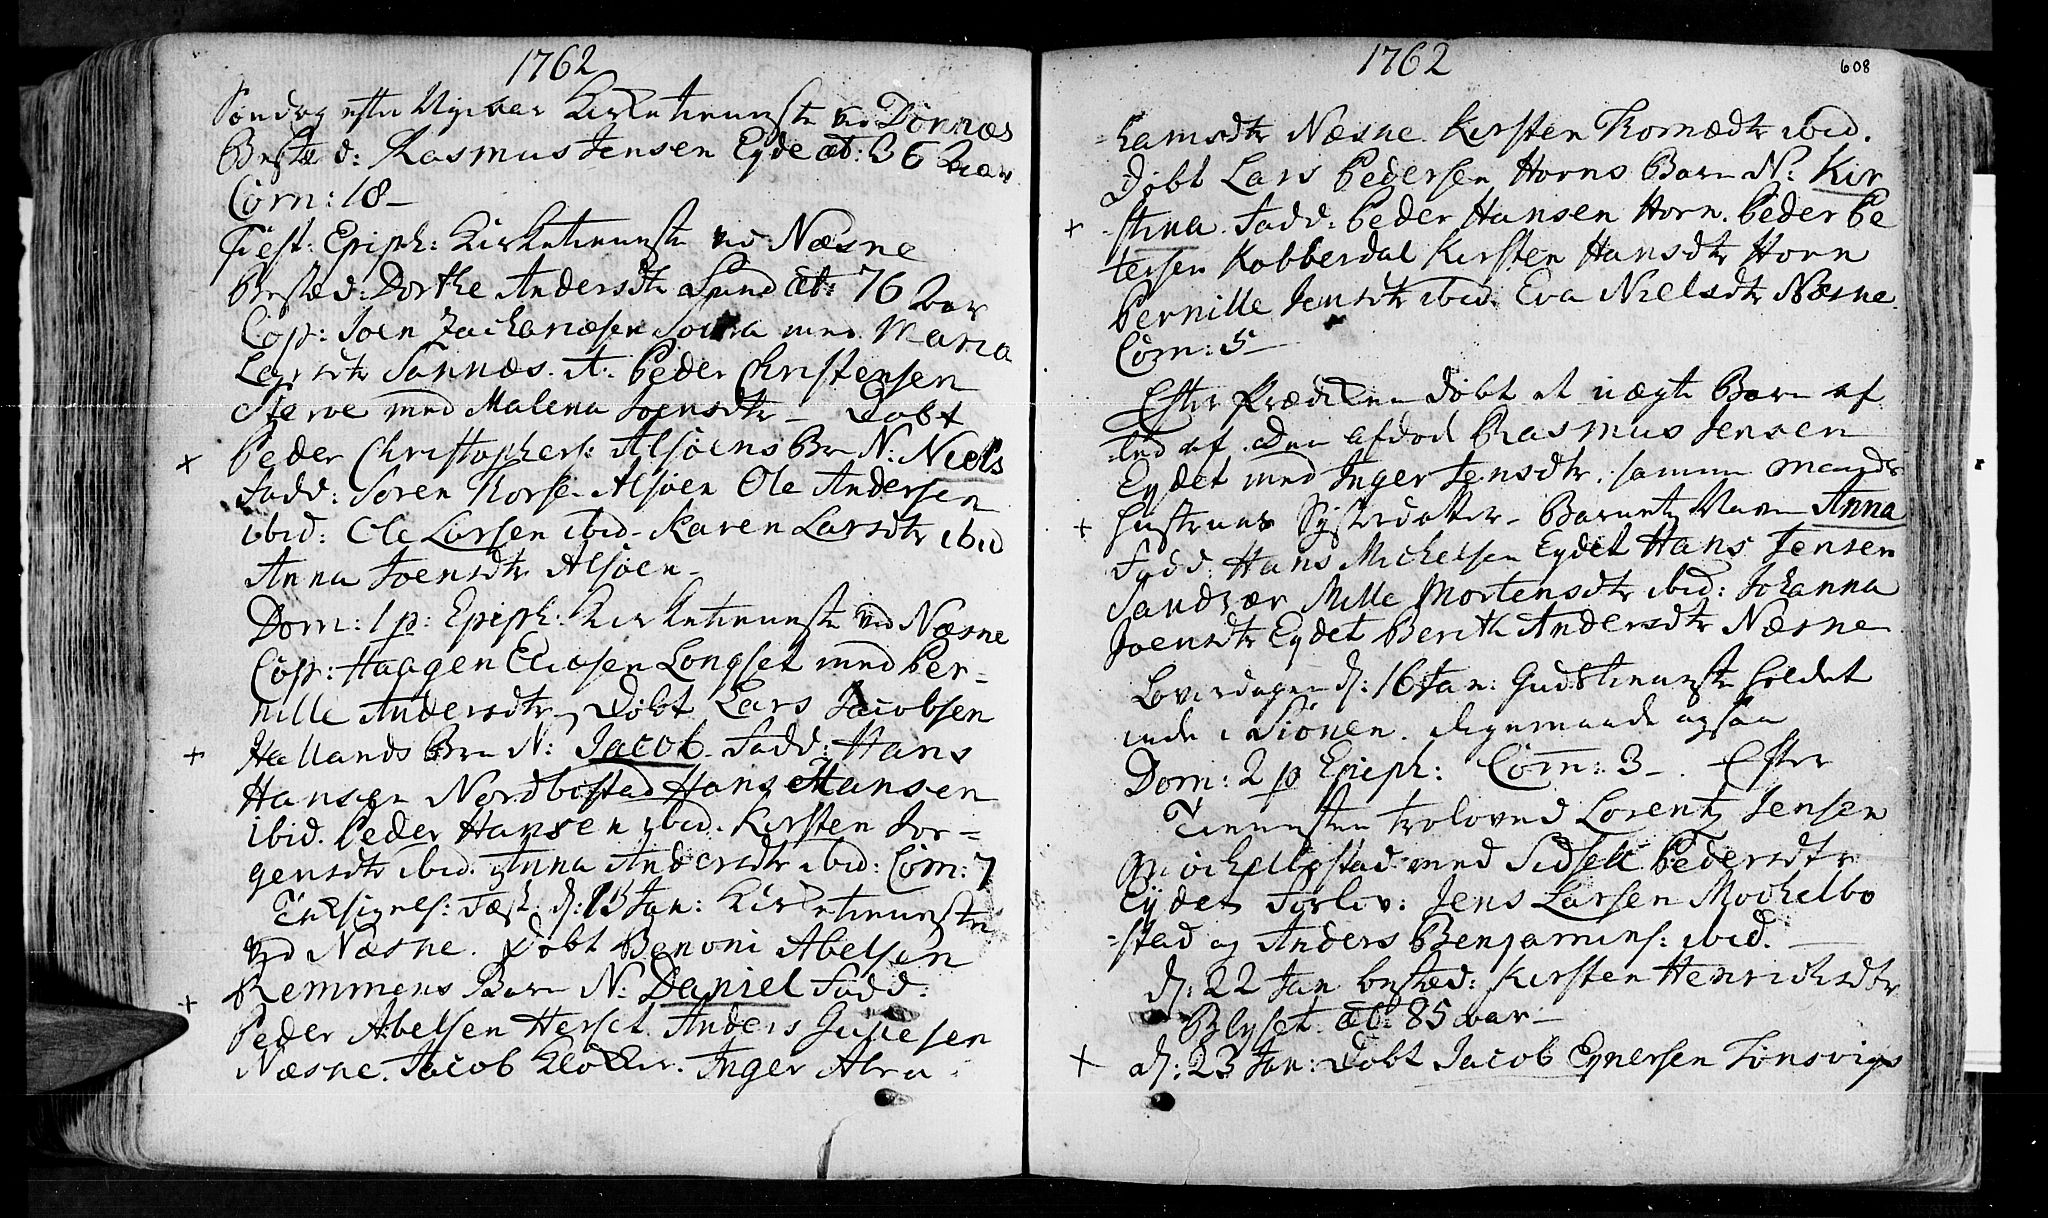 1762
Søndag efter Nyeaar Kirketienneste ved Dønnæs
Bested: Rasmus Jensen Eyde æt: 36 Aar
Com: 18 –
Fest: Epiph: Kirketienneste ved Næsne
Bested: Dorthe Andersdtr Sund æt: 76 Aar
Cop: Joen Zachariæsen med Maria
Larsdtr Sannæs. It: Peder Christensen
med Malena Joensdtr – Døbt
+ Peder Christophers: Alsøens Brn N: Niels
Fadd: Søren Thorse Alsøen Ole Andersen
ibid: Ole Larsen ibid – Karen Larsdtr ibid
Anna Joensdtr Alsøen –
Dom: 1 p: Epiph: Kirketienneste ved Næsne
Cop: Haagen Eliæsen Longset med Per=
nille Andersdtr – Døbt Lars Jacobsen
+ Hallands Brn N: Jacob Fadd: Hans
Hansen Nordbostad Hans Hansen
ibid. Peder Hansen ibid. Kirsten Jør=
gensdtr ibid. Anna Andersdtr ibid: Com: 7
Tachsigels: Fæst: d: 13 Jan: Kirketienneste
ved Næsne. Døbt Benoni Abelsen
+ Remmens Barn N: Daniel Fadd:
Peder Abelsen Herset Anders
Næsne. Jacob Klokker. Inger Abra
1762
608
=hamsdtr Næsne. Kirsten Thomædtr ibid.
Døbt Lars Pedersen Horns Barn N: Kir
+ =stina Fadd: Peder Hansen Horn. Peder Pe
tersen Kobberdal Kirsten Hansdtr Horn
Pernille Jensdtr ibid. Eva Nielsdtr Næsne
Com: 5 –
Efter Prædiken døbt et uægte Barn af
led af den afdøde Rasmus Jensen
Eydet med Inger Jensdtr. samme mands
+ hustrues Systerdatter – Barnets Navn Anna
Fadd: Hans Michelsen Eydet Hans Jensen
Sandvær Mille Mortensdtr ibid: Johanna
Joensdtr Eydet Berith Andersdtr Næsne
Løverdagen d: 16 Jan: Gudstienneste holdet
inde i Siønen. ligemaade ogsaa
Dom: 2 p Epiph: Com: 3 – . Efter
Tiennesten troloved Lorentz Jensen
Mochelbostad med Sidsell Pedersdtr
Eydet Forlov: Jens Larsen Mochelbo
=stad og Anders Benjamins: ibid. –
d: 22 Jan bested: Kirsten Henrichsdtr
Blyset æt: 85 aar –
+ d: 23 Jan: Døbt Jacob Eynersen Tønsvigs